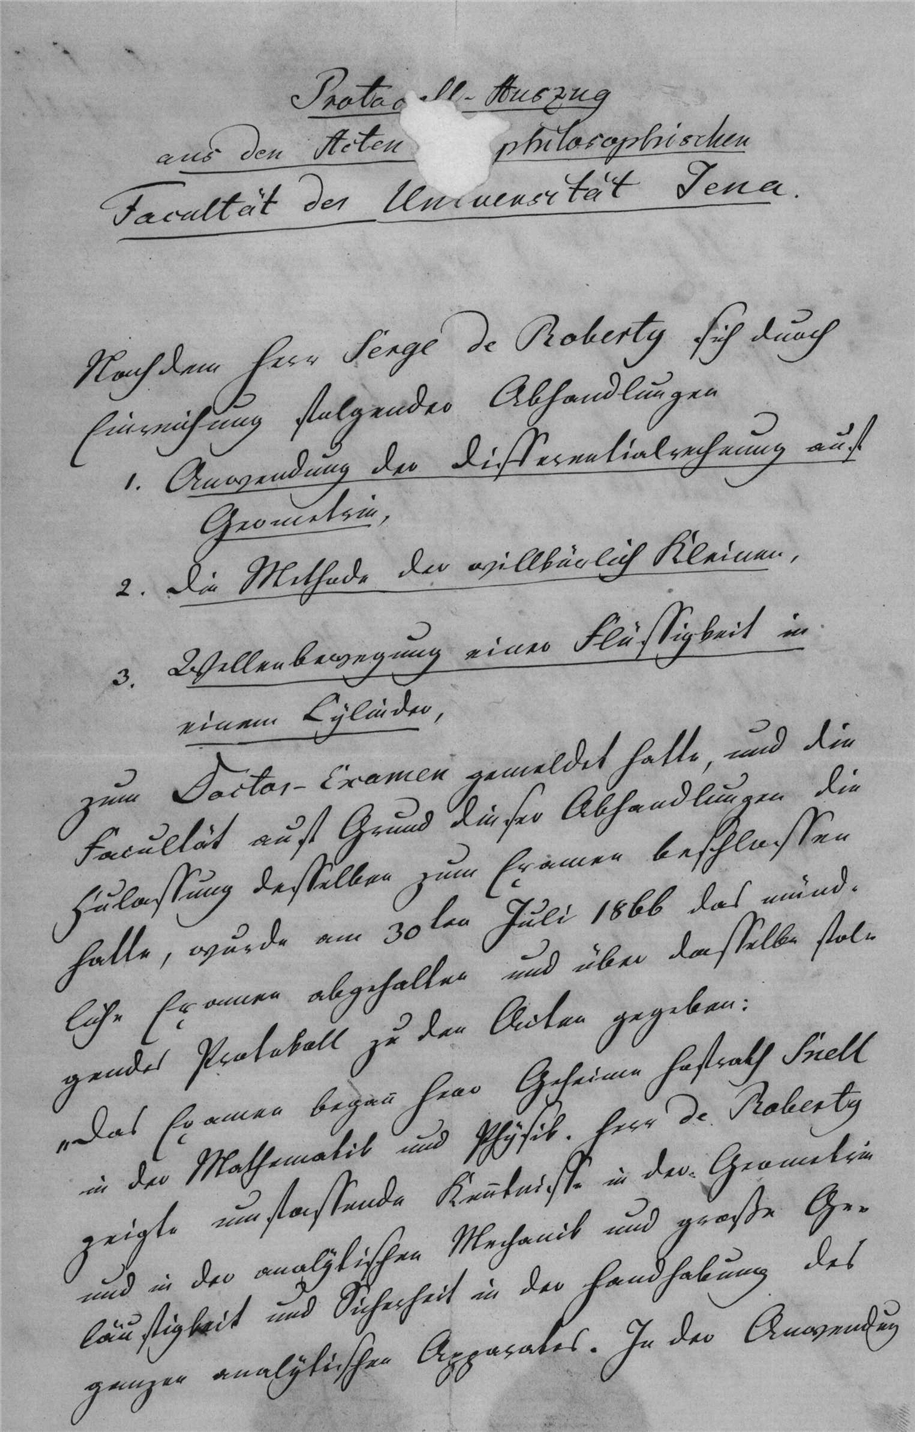 Protocoll-Auszug
aus den Acten philosophischen
Facultät der Universität Jena.
Nachdem Herr Serge de Roberty sich durch
Einreichung folgender Abhandlungen
1. Anwendung der Differentialrechnung auf
Geometrie,
2. Die Methode der willkürlich Kleinen,
3. Wellenbewegung einer Flüssigkeit in
einem Cylinder,
zum Doctor-Examen gemeldet hatte, und die
Facultät auf Grund dieser Abhandlungen die
Zulassung desselben zum Examen beschlossen
hatte, wurde am 30ten Juli 1866 das münd-
liche Examen abgehalten und über dasselbe fol-
gendes Protokoll zu den Acten gegeben:
„Das Examen begann Herr Geheime Hofrath Snell
in der Mathematik und Physik. Herr de Roberty
zeigte umfassende Kenntnisse in der Geometrie
und in der analytischen Mechanik und große Ge-
läufigkeit und Sicherheit in der Handhabung des
ganzen analytischen Apparates. In der Anwendung